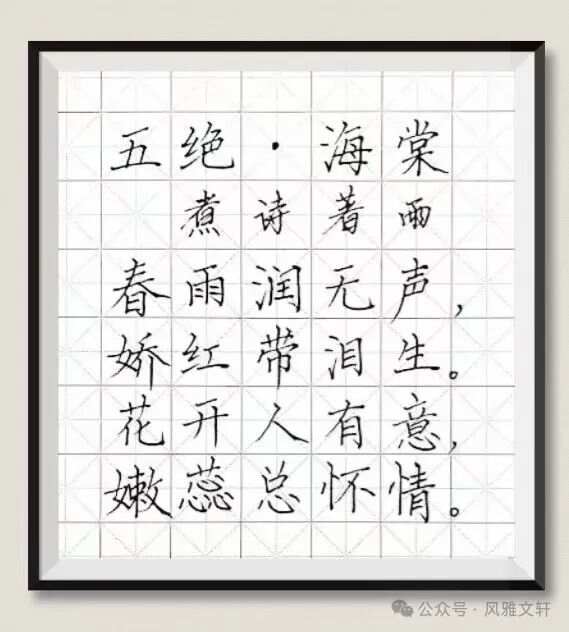 五绝·海棠
煮诗著雨
春雨润无声，
娇红带泪生。
花开人有意，
嫩蕊总怀情。
公众号·风雅文轩